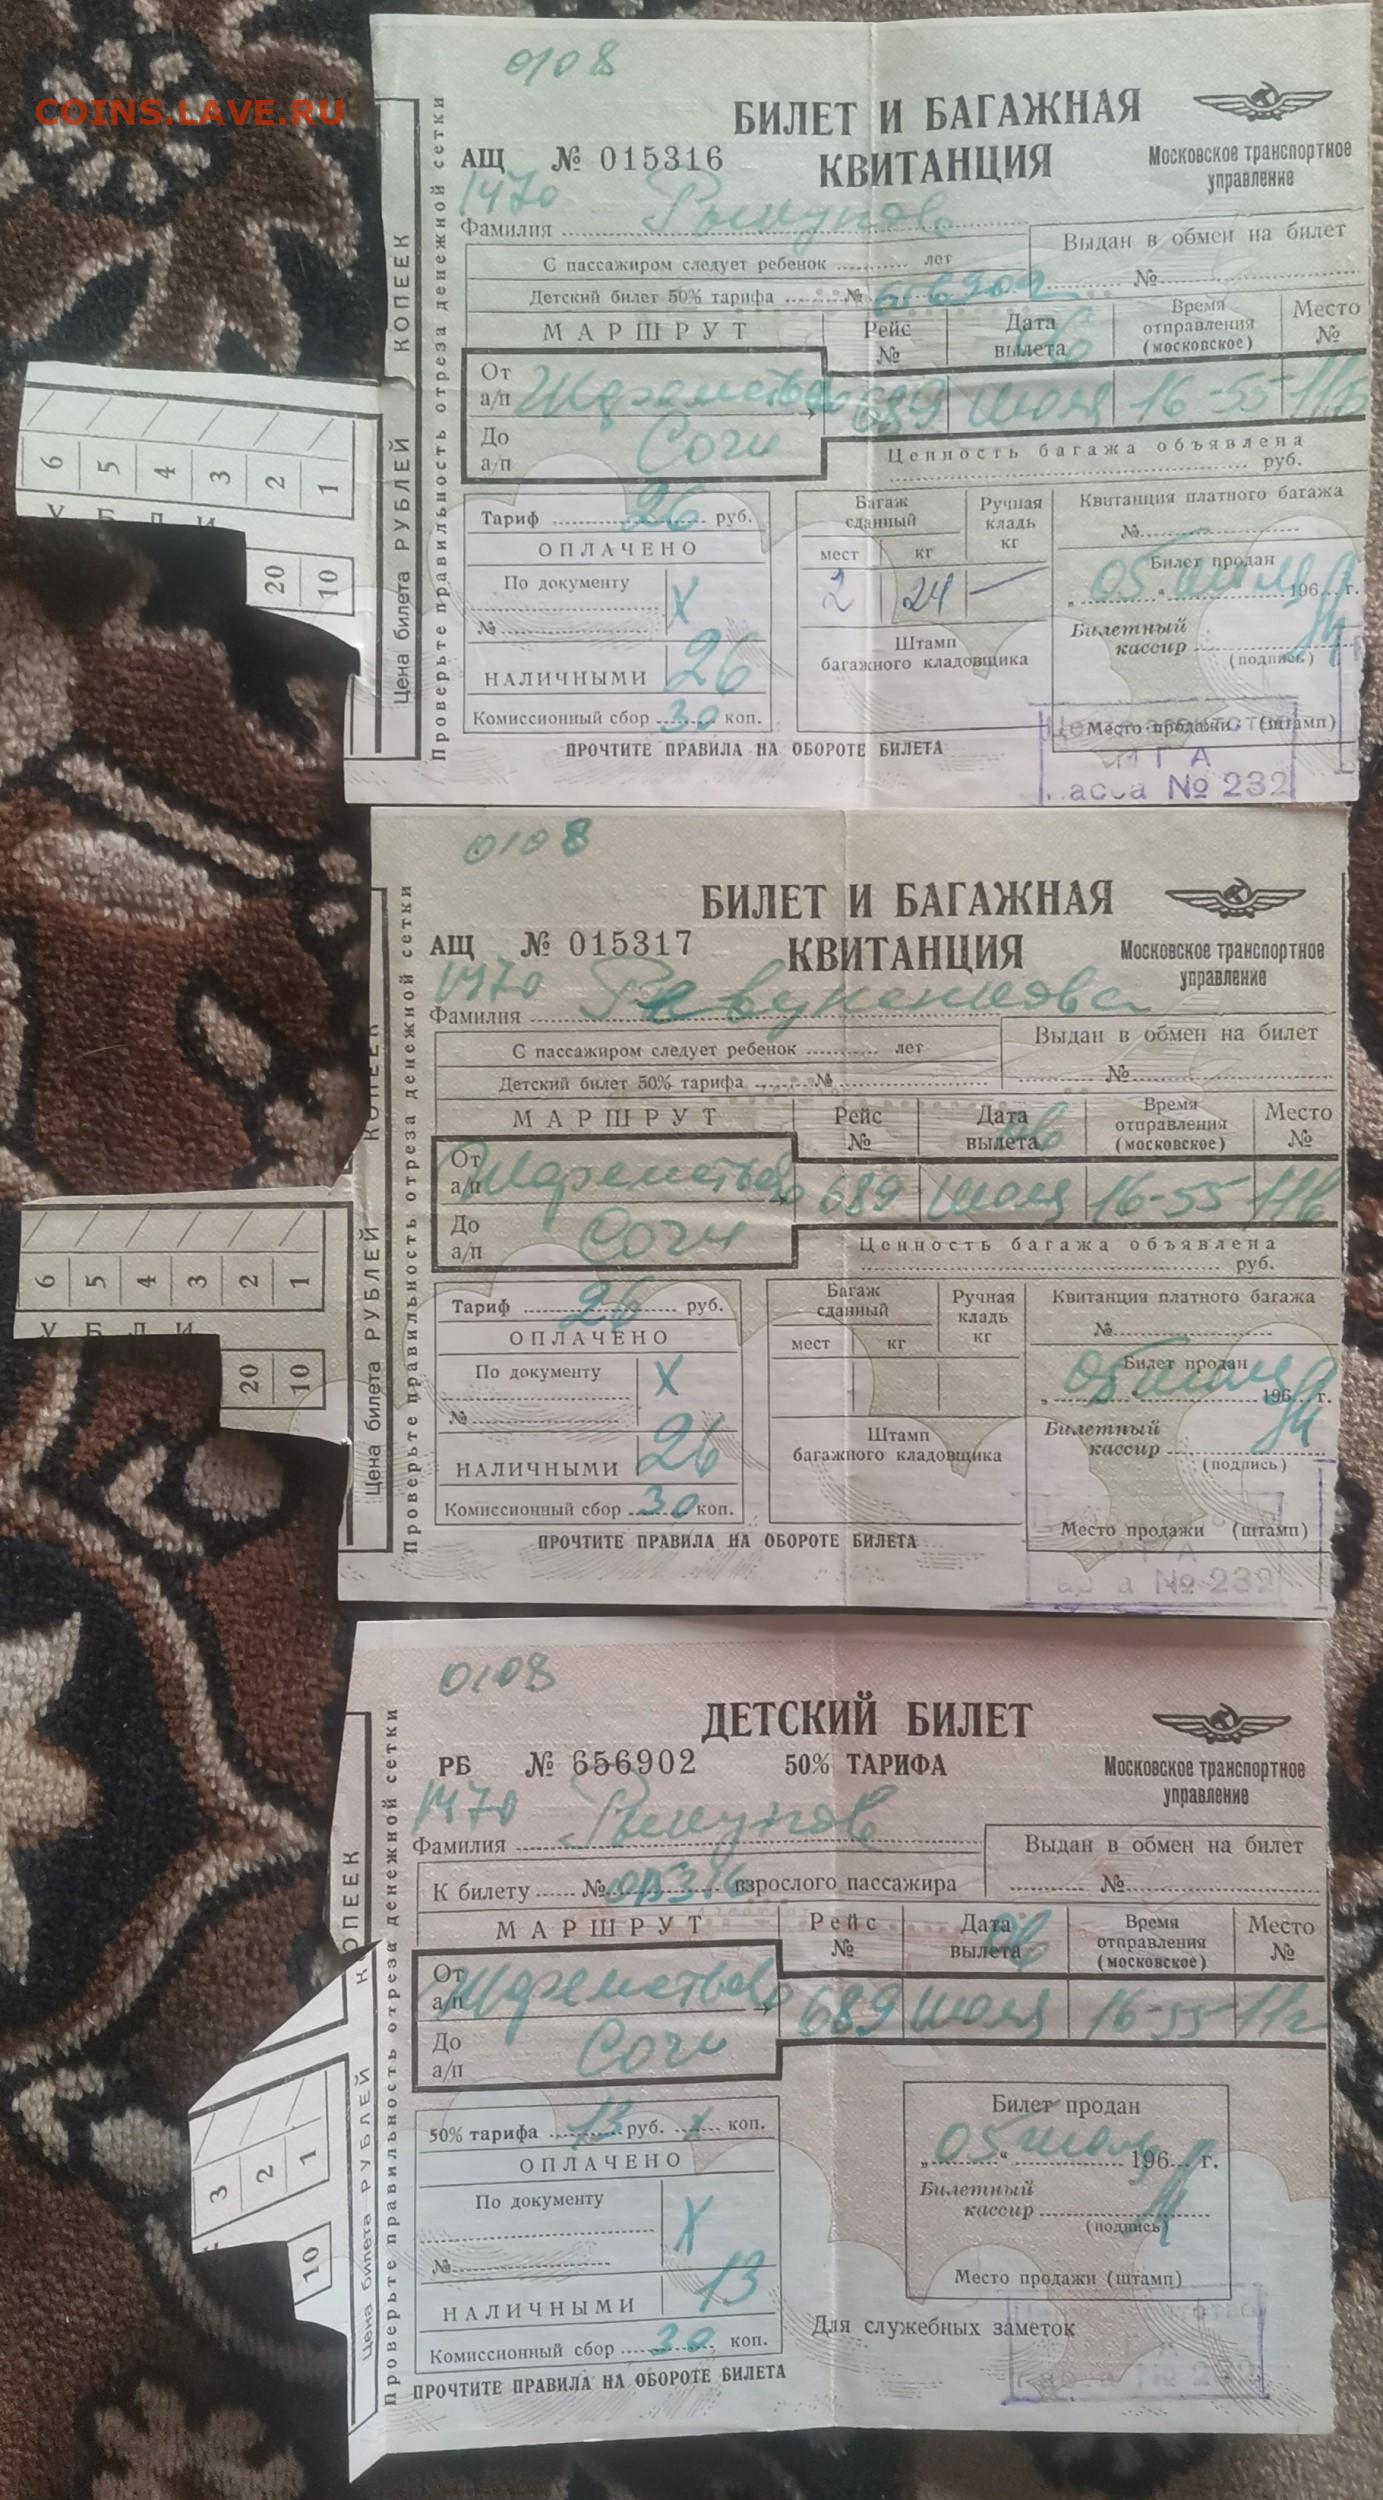 COINS.LAVE.RU
0108
БИЛЕТ И БАГАЖНАЯ
КВИТАНЦИЯ
АЩ № 015316
Московское транспортное
управление
1470
Фамилия
Выдан в обмен на билет
№
С пассажиром следует ребенок лет
Детский билет 50% тарифа № 656902
МАРШРУТ
Рейс
№
Дата
вылета
06
Время
отправления
(московское)
Место
№
От
а/п
Шереметьево
689 июля 16-55 11б
До
а/п
Сочи
Ценность багажа объявлена
руб.
Тариф 26 руб.
ОПЛАЧЕНО
По документу
№
X
НАЛИЧНЫМИ 26
Комиссионный сбор 30 коп.
Багаж
сданный
мест кг
2 24 —
Ручная
кладь
кг
Штамп
багажного кладовщика
Квитанция платного багажа
№
Билет продан
„ 05 “ июля 196 г.
Билетный
кассир
(подпись)
Место продажи (штамп)
ГА
Касса № 232
ПРОЧТИТЕ ПРАВИЛА НА ОБОРОТЕ БИЛЕТА
Проверьте правильность отреза денежной сетки
Цена билета РУБЛЕЙ КОПЕЕК
6 5 4 3 2 1
УБЛИ
20 10
0108
БИЛЕТ И БАГАЖНАЯ
КВИТАНЦИЯ
АЩ № 015317
Московское транспортное
управление
1470
Фамилия
Выдан в обмен на билет
№
С пассажиром следует ребенок лет
Детский билет 50% тарифа №
МАРШРУТ
Рейс
№
Дата
вылета
06
Время
отправления
(московское)
Место
№
От
а/п
Шереметьево
689 июля 16-55 11в
До
а/п
Сочи
Ценность багажа объявлена
руб.
Тариф 26 руб.
ОПЛАЧЕНО
По документу
№
X
НАЛИЧНЫМИ 26
Комиссионный сбор 30 коп.
Багаж
сданный
мест кг
Ручная
кладь
кг
Штамп
багажного кладовщика
Квитанция платного багажа
№
Билет продан
„ 05 “ июля 196 г.
Билетный
кассир
(подпись)
Место продажи (штамп)
ГА
№ 232
ПРОЧТИТЕ ПРАВИЛА НА ОБОРОТЕ БИЛЕТА
Проверьте правильность отреза денежной сетки
Цена билета РУБЛЕЙ КОПЕЕК
6 5 4 3 2 1
УБЛИ
20 10
0108
ДЕТСКИЙ БИЛЕТ
РБ № 656902 50% ТАРИФА
Московское транспортное
управление
1470
Фамилия
Выдан в обмен на билет
№
К билету № 015316 взрослого пассажира
МАРШРУТ
Рейс
№
Дата
вылета
06
Время
отправления
(московское)
Место
№
От
а/п
Шереметьево
689 июля 16-55 11г
До
а/п
Сочи
50% тарифа 13 руб. x коп.
ОПЛАЧЕНО
По документу
№
X
НАЛИЧНЫМИ 13
Комиссионный сбор 30 коп.
Билет продан
„ 05 “ июля 196 г.
Билетный
кассир
(подпись)
Место продажи (штамп)
Для служебных заметок
ПРОЧТИТЕ ПРАВИЛА НА ОБОРОТЕ БИЛЕТА
Проверьте правильность отреза денежной сетки
Цена билета РУБЛЕЙ КОПЕЕК
3 2 1
10